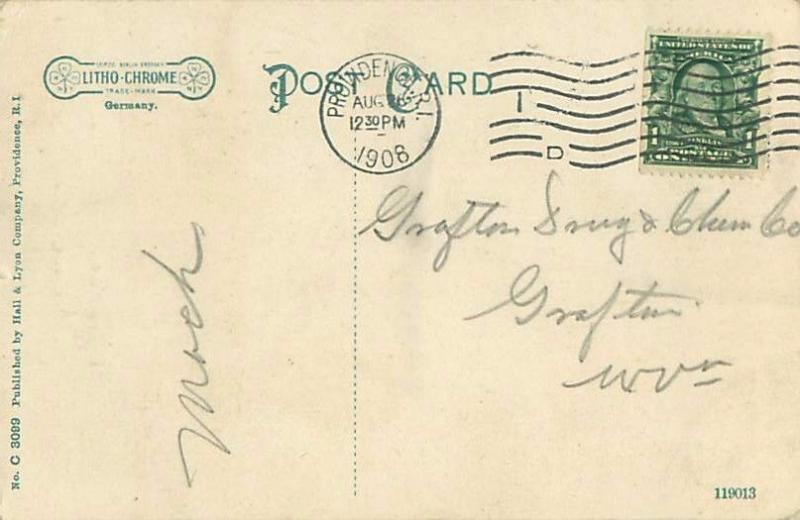 LEIPZIG BERLIN DRESDEN
LITHO-CHROME
TRADE-MARK
Germany.
POST CARD
PROVIDENCE, R.I.
AUG
12 30 PM
1908
1
D
UNITED STATES OF
AMERICA
1 1
POSTAGE
ONE
Grafton Drug & Chem Co
Grafton
W Va
Mock
No. C 3099 Published by Hall & Lyon Company, Providence, R.I
119013